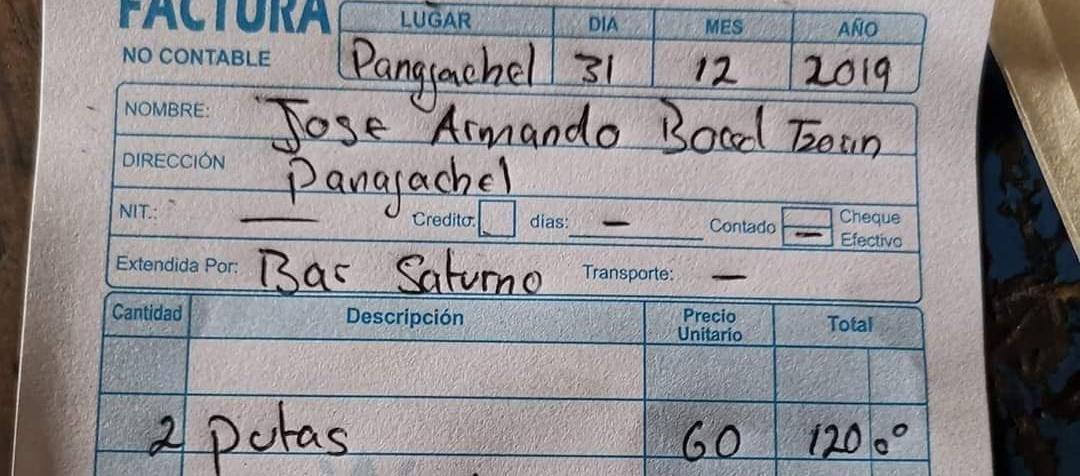 FACTURA LUGAR DIA MES AÑO
NO CONTABLE Pangjachel 31 12 2019
NOMBRE: Jose Armando Bocel Tzorin
DIRECCIÓN Panajachel
NIT.: — Credito: dias: — Contado — Cheque Efectivo
Extendida Por: Bar Saturno Transporte: —
Cantidad Descripción Precio Unitario Total
2 putas 60 120.00